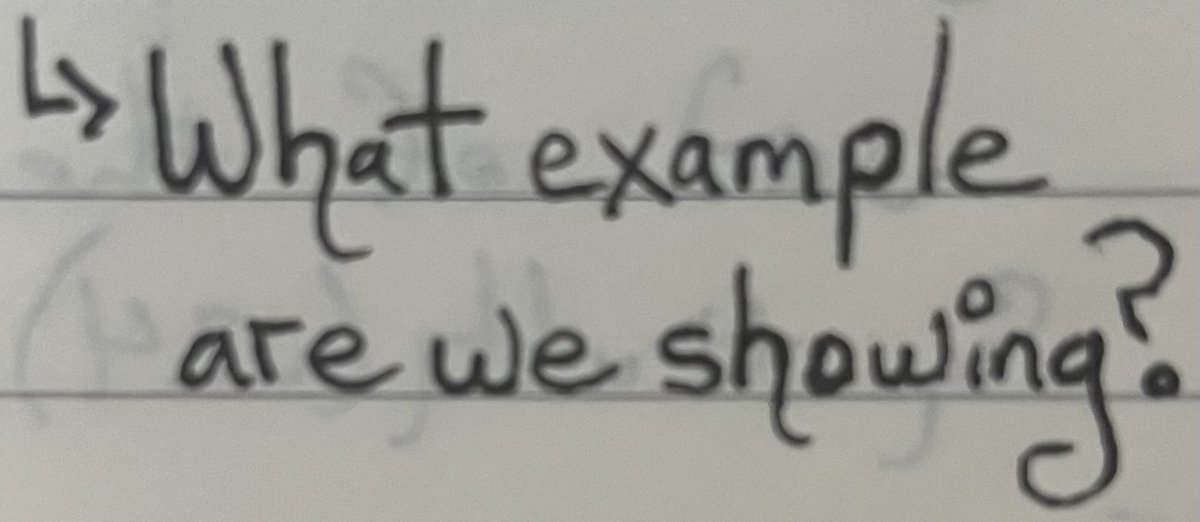 ↳ What example
are we showing?